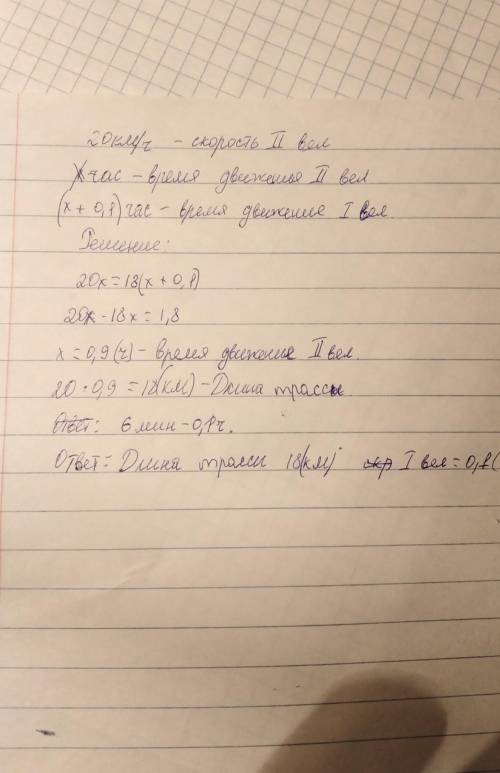 20км/ч - скорость II вел
х час - время движенья II вел
(х + 0,1) час - время движение I вел.
Решение:
20х = 18(х + 0,1)
20х - 18х = 1,8
х = 0,9 (ч) - время движение II вел.
20 · 0,9 = 18(км) - Длина трассы.
Ответ: 6 мин - 0,1 ч.
Ответ = Длина трассы 18(км) I вел = 0,1(